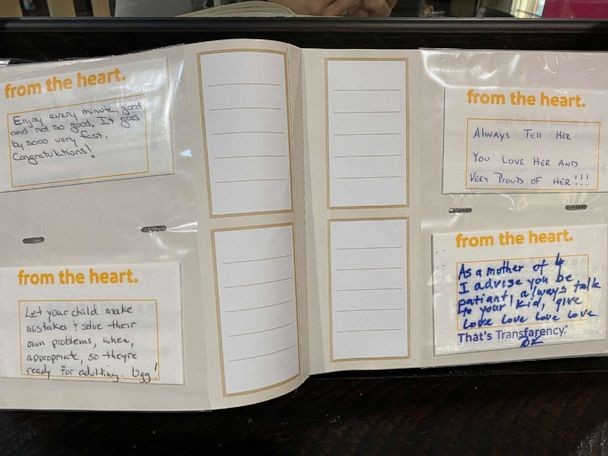 from the heart.
Enjoy every minute, good
and not so good. It goes
by sooo very fast.
Congratulations!
from the heart.
Let your child make
mistakes & solve their
own problems, when,
appropriate, so they're
ready for adulting. Ugg!
from the heart.
Always Tell Her
You Love Her And
Very Proud of Her!!!
from the heart.
As a mother of 4
I advise you be
patient, always talk
to your kid, give
Love Love Love Love
That's Transfarency.